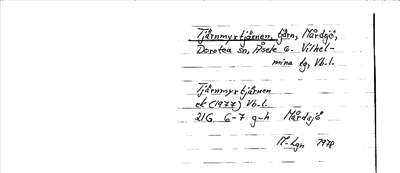 Tjärnmyrtjärnen, tjärn, Mårdsjö,
Dorotea sn, Åsele o. Vilhel-
mina tg, Vb.l.
Tjärnmyrtjärnen
ek (1977) Vb.l.
21G 6-7 g-h Mårdsjö
1978